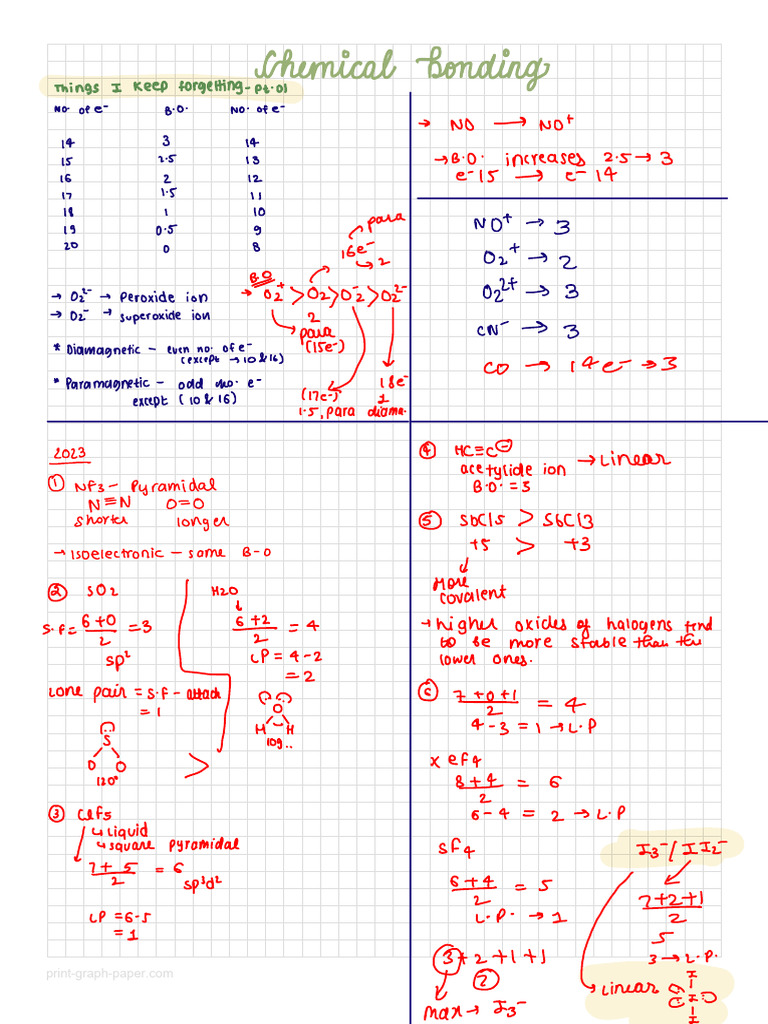 Chemical Bonding
Things I Keep forgetting - Pt.01
No. of e⁻ B.O. No. of e⁻
14 3 14
15 2.5 13
16 2 12
17 1.5 11
18 1 10
19 0.5 9
20 0 8
→ O₂²⁻ → Peroxide ion
→ O₂⁻ → superoxide ion
* Diamagnetic – even no. of e⁻
(except → 10 & 16)
* Paramagnetic – odd no. e⁻
except (10 & 16)
para
16e⁻
2
B.O
→ O₂⁺ > O₂ > O₂⁻ > O₂²⁻
2
para
(15e⁻)
(17e⁻)
1.5, para
18e⁻
1
diama.
→ NO → NO⁺
→ B.O. increases 2.5 → 3
e⁻15 → e⁻14
NO⁺ → 3
O₂⁺ → 2
O₂²⁺ → 3
CN⁻ → 3
CO → 14e⁻ → 3
2023
① NF3 – Pyramidal
N≡N O=O
shorter longer
→ Isoelectronic – same B-O
② SO2
S.F = 6+0/2 = 3
sp²
Lone pair = S.F – attach
= 1
S
O O
120°
>
H2O
6+2/2 = 4
LP = 4-2
= 2
O
H H
109..
③ ClF5
↳ liquid
↳ square pyramidal
7+5/2 = 6
sp³d²
LP = 6-5
= 1
④ HC≡C⊖
acetylide ion → Linear
B.O. = 3
⑤ SbCl5 > SbCl3
+5 > +3
More
covalent
→ Higher oxides of halogens tend
to be more stable than the
lower ones.
⑥ 7+0+1/2 = 4
4-3 = 1 → L.P
XeF4
8+4/2 = 6
6-4 = 2 → L.P
SF4
6+4/2 = 5
L.P. → 1
3+2+1+1
②
Max → I₃⁻
I₃⁻/II₂⁻
7+2+1/2
5
3 → L.P.
→ Linear
I
I
I
print-graph-paper.com